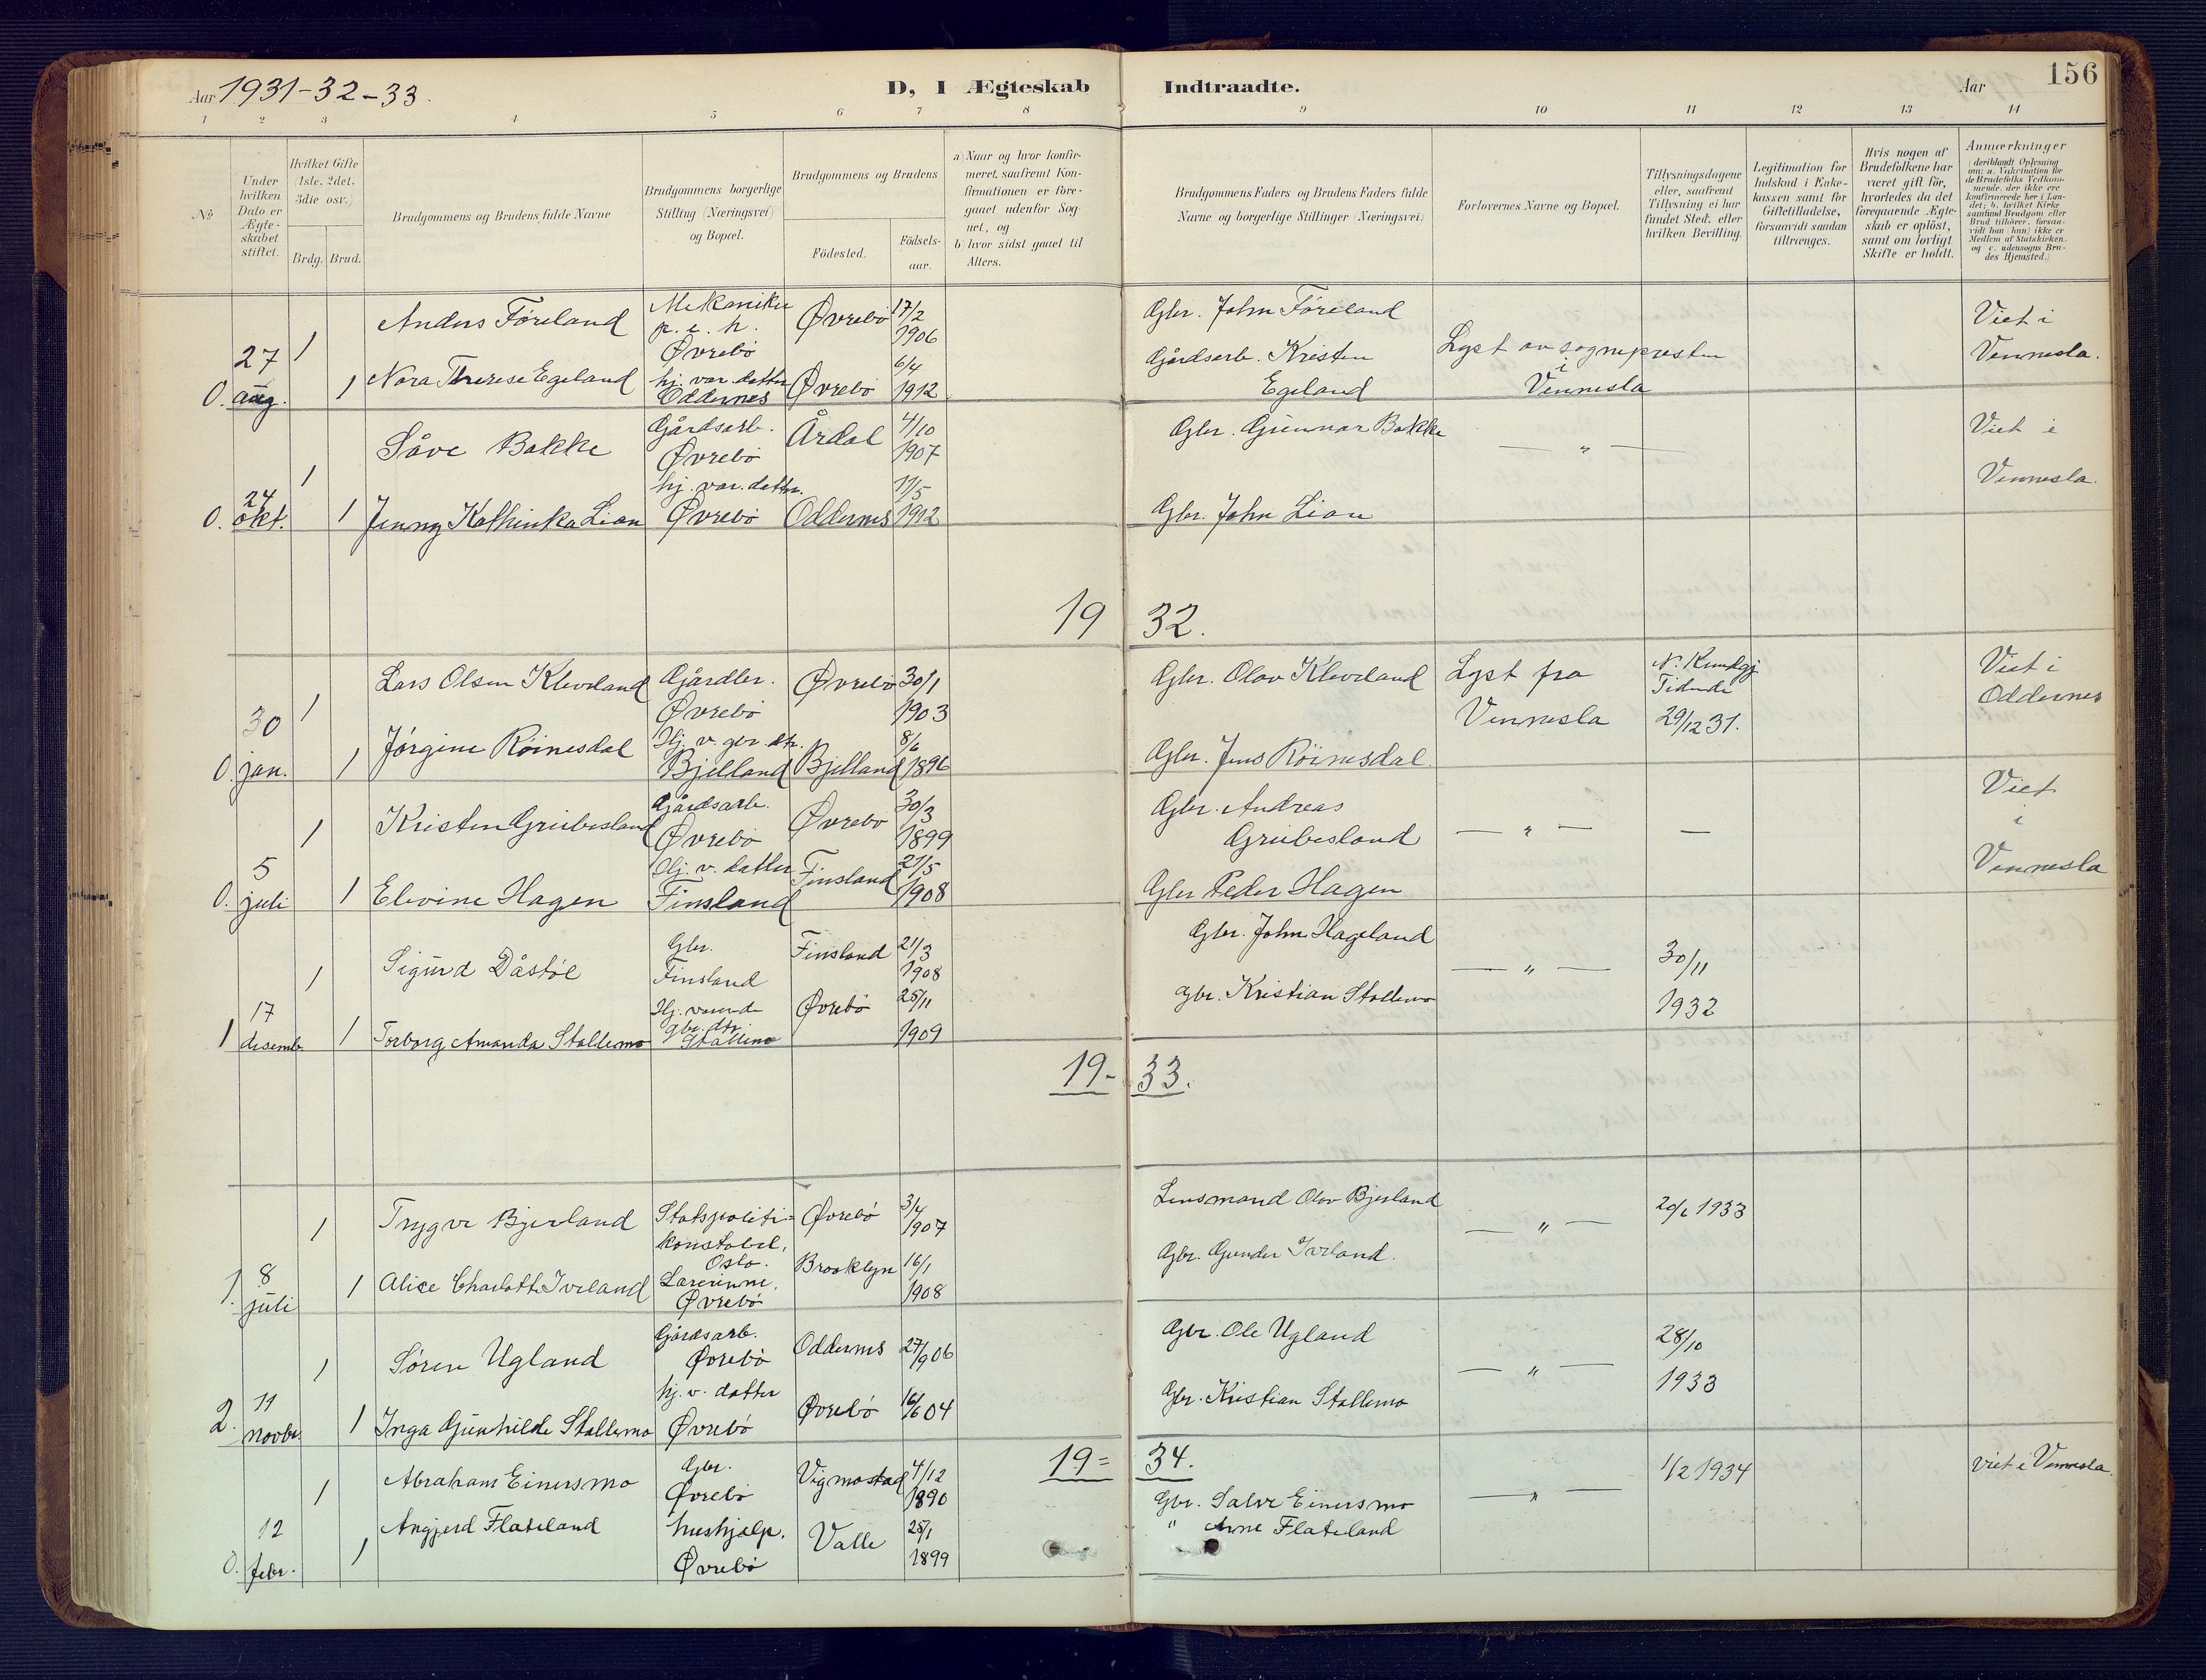 Aar 1931-32-33.
D, I Ægteskab Indtraadte.
Aar
156
1 2 3 4 5 6 7 8 9 10 11 12 13 14
No
Under hvilken Dato er Ægteskabet stiftet.
Hvilket Gifte (1ste, 2det, 3die osv.)
Brdg. Brud.
Brudgommens og Brudens fulde Navne
Brudgommens borgerlige Stilling (Næringsvei) og Bopæl.
Brudgommens og Brudens
Födested.
Födsels-aar.
a) Naar og hvor konfirmeret, saafremt Konfirmationen er foregaaet udenfor Sognet, og
b) hvor sidst gaaet til Alters.
Brudgommens Faders og Brudens Faders fulde Navne og borgerlige Stillinger (Næringsvei.)
Forlovernes Navne og Bopæl.
Tillysningsdagene eller, saafremt Tillysning ei har fundet Sted, efter hvilken Bevilling.
Legitimation for Indskud i Enkekassen samt for Giftetilladelse, forsaavidt saadan tiltrænges.
Hvis nogen af Brudefolkene har været gift för, hvorledes da det foregaaende Ægteskab er oplöst, samt om lovligt Skifte er holdt.
Anmærkninger
(deriblandt Oplysning om: a. Vakcination for de Brudefolks Vedkommende, der ikke ere konfirmerede her i Landet; b. hvilket Kirkesamfund Brudgom eller Brud tilhörer, forsaavidt han (hun) ikke er Medlem af Statskirken, og c. udensogns Brudes Hjemsted.)
0. 27 aug. 1 Anders Föreland Mekaniker p. e. h. Øvrebö Øvrebö 17/2 1906 Gbr. John Föreland Lyst av sognepresten i Vennesla Viet i Vennesla.
1 Nora Therese Egeland hj. vær. datter Oddernes Øvrebö 6/4 1912 Gårdsarb. Kristen Egeland
0. 24 okt. 1 Såve Bakke Gårdsarb. Øvrebö Årdal 4/10 1907 Gbr. Gunnar Bakke — " — Viet i Vennesla.
1 Jenny Kathinka Lian hj. vær. datter. Øvrebö Oddernes 11/5 1912 Gbr. John Lian
19 32.
0. 30 jan. 1 Lars Olsen Kleveland Gårdbr. Øvrebö Øvrebö 30/1 1903 Gbr. Olav Kleveland Lyst fra Vennesla N. Kundgj Tidende 29/12 31. Viet i Oddernes
1 Jörgine Röinesdal Hj. v. gbr. dtr. Bjelland Bjelland 8/6 1896 Gbr. Jens Röinesdal.
0. 5 juli 1 Kristen Greibesland Gårdsarb. Øvrebö Øvrebö 30/3 1899 Gbr. Andreas Greibesland — " — — Viet i Vennesla
1 Elevine Hagen Hj. v. datter Finsland Finsland 21/5 1908 Gbr Peder Hagen
1 17 desemb. 1 Sigurd Dåstöl Gbr. Finsland Finsland 21/3 1908 Gbr. John Hageland — " — 30/11 1932
1 Torborg Amanda Stallemo Hj. værende gbr. dtr. Stallemo Øvrebö 25/11 1909 Gbr. Kristian Stallemo
19- 33.
1. 8 juli 1 Trygve Bjerland Statspoliti= konstabel, Oslo. Øvrebö 3/4 1907 Lensmand Olav Bjerland — " — 20/6 1933
1 Alice Charlotte Iveland Lærerinne. Øvrebö Brooklyn 16/1 1908 Gbr. Gunder Iveland.
2. 11 novbr. 1 Sören Ugland Gårdsarb. Øvrebö Oddernes 27/9 06 Gbr. Ole Ugland — " — 28/10 1933
1 Inga Gunhilde Stallemo hj. v. datter Øvrebö Øvrebö 16/6 04 Gbr. Kristian Stallemo
19= 34.
0. 12 febr. 1 Abraham Einersmo Gbr. Øvrebö Vigmostad 4/12 1890 Gbr. Salve Einersmo — " — 1/2 1934 viet i Vennesla.
1 Angjerd Flateland hushjælp. Øvrebö Valle 25/1 1899 " Arne Flateland